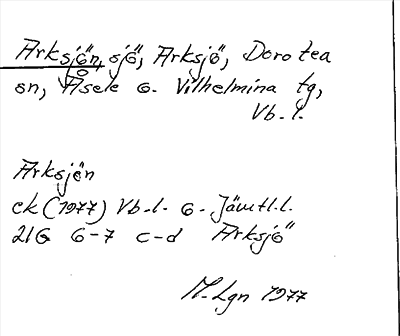 Arksjön, sjö, Arksjö, Dorotea
sn, Åsele o. Vilhelmina tg,
Vb. l.
Arksjön
ek (1977) Vb.l. o. Jämtl.l.
21G 6-7 c-d Arksjö
M. Lgn 1977